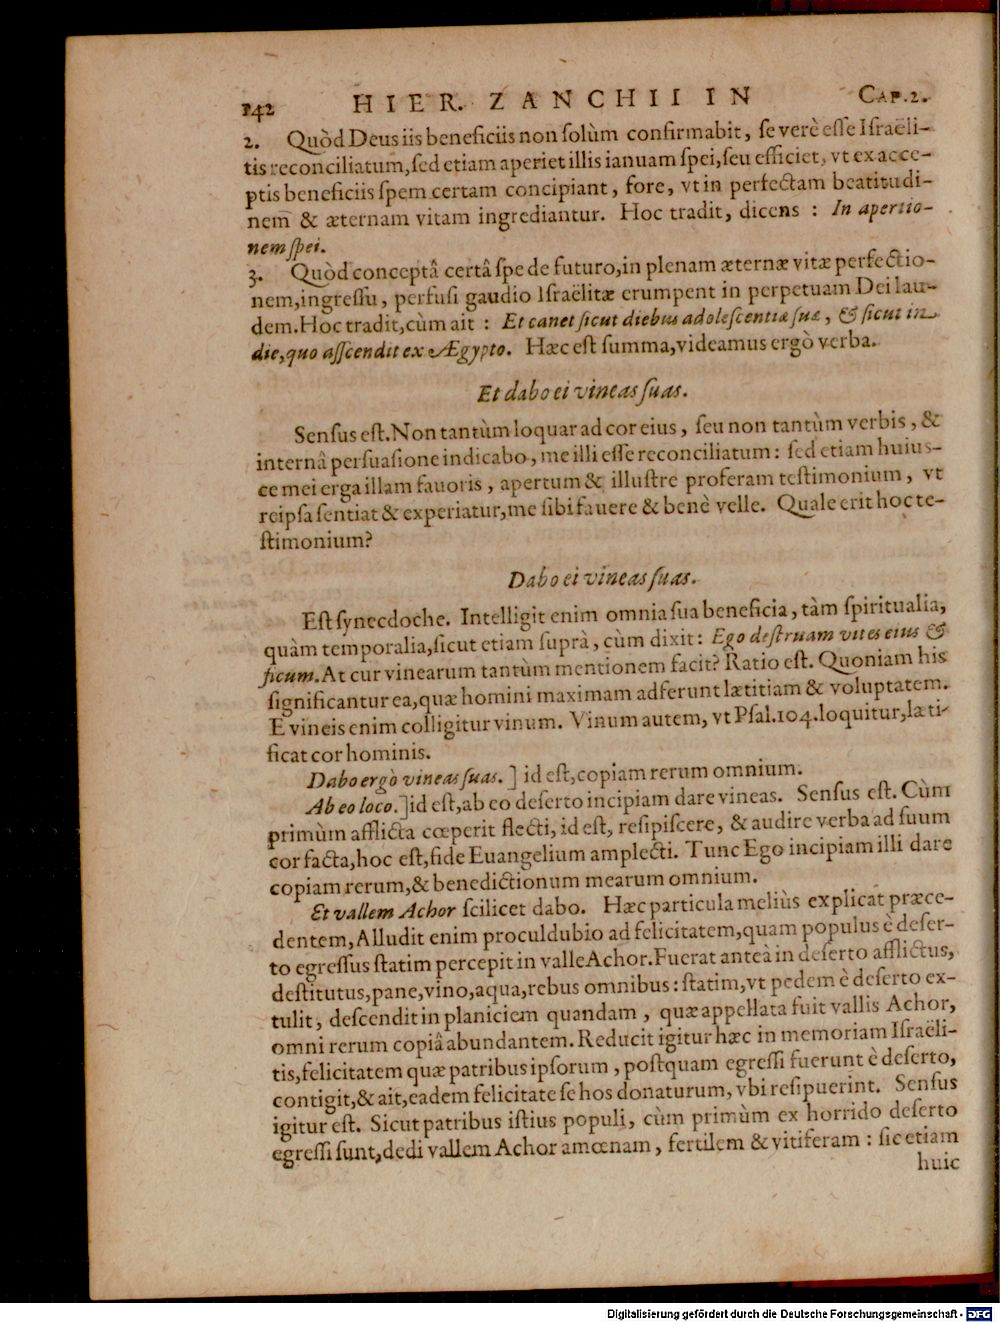 142 HIER. ZANCHII IN CAP.2.
2. Quòd Deus iis beneficiis non ſolùm confirmabit, ſe verè eſſe Iſraëli-
tis reconciliatum, ſed etiam aperiet illis ianuam ſpei, ſeu efficiet, vt ex acce-
ptis beneficiis ſpem certam concipiant, fore, vt in perfectam beatitudi-
nem & æternam vitam ingrediantur. Hoc tradit, dicens : In apertio-
nem ſpei.
3. Quòd conceptâ certâ ſpe de futuro, in plenam æternæ vitæ perfectio-
nem, ingreſſu, perfuſi gaudio Iſraëlitæ erumpent in perpetuam Dei lau-
dem. Hoc tradit, cùm ait : Et canet ſicut diebus adoleſcentiæ ſuæ, & ſicut in
die, quo aſſcendit ex Ægypto. Hæc eſt ſumma, videamus ergò verba.
Et dabo ei vineas ſuas.
Senſus eſt. Non tantùm loquar ad cor eius, ſeu non tantùm verbis, &
internâ perſuaſione indicabo, me illi eſſe reconciliatum : ſed etiam huius-
ce mei erga illam fauoris, apertum & illuſtre proferam teſtimonium, vt
reipſa ſentiat & experiatur, me ſibi fauere & benè velle. Quale erit hoc te-
ſtimonium?
Dabo ei vineas ſuas.
Eſt ſynecdoche. Intelligit enim omnia ſua beneficia, tàm ſpiritualia,
quàm temporalia, ſicut etiam ſuprà, cùm dixit : Ego deſtruam vites eius &
ficum. At cur vinearum tantùm mentionem facit? Ratio eſt. Quoniam his
ſignificantur ea, quæ homini maximam adferunt lætitiam & voluptatem.
E vineis enim colligitur vinum. Vinum autem, vt Pſal.104. loquitur, læti-
ficat cor hominis.
Dabo ergò vineas ſuas. ] id eſt, copiam rerum omnium.
Ab eo loco. ] id eſt, ab eo deſerto incipiam dare vineas. Senſus eſt. Cùm
primùm afflicta cœperit flecti, id eſt, reſipiſcere, & audire verba ad ſuum
cor facta, hoc eſt, fide Euangelium amplecti. Tunc Ego incipiam illi dare
copiam rerum, & benedictionum mearum omnium.
Et vallem Achor ſcilicet dabo. Hæc particula meliùs explicat præce-
dentem, Alludit enim proculdubio ad felicitatem, quam populus è deſer-
to egreſſus ſtatim percepit in valle Achor. Fuerat anteà in deſerto afflictus,
deſtitutus, pane, vino, aqua, rebus omnibus : ſtatim, vt pedem è deſerto ex-
tulit, deſcendit in planiciem quandam, quæ appellata fuit vallis Achor,
omni rerum copiâ abundantem. Reducit igitur hæc in memoriam Iſraëli-
tis, felicitatem quæ patribus ipſorum, poſtquam egreſſi fuerunt è deſerto,
contigit, & ait, eadem felicitate ſe hos donaturum, vbi reſipuerint. Senſus
igitur eſt. Sicut patribus iſtius populi, cùm primùm ex horrido deſerto
egreſſi ſunt, dedi vallem Achor amœnam, fertilem & vitiferam : ſic etiam
huic
Digitalisierung gefördert durch die Deutsche Forschungsgemeinschaft - DFG